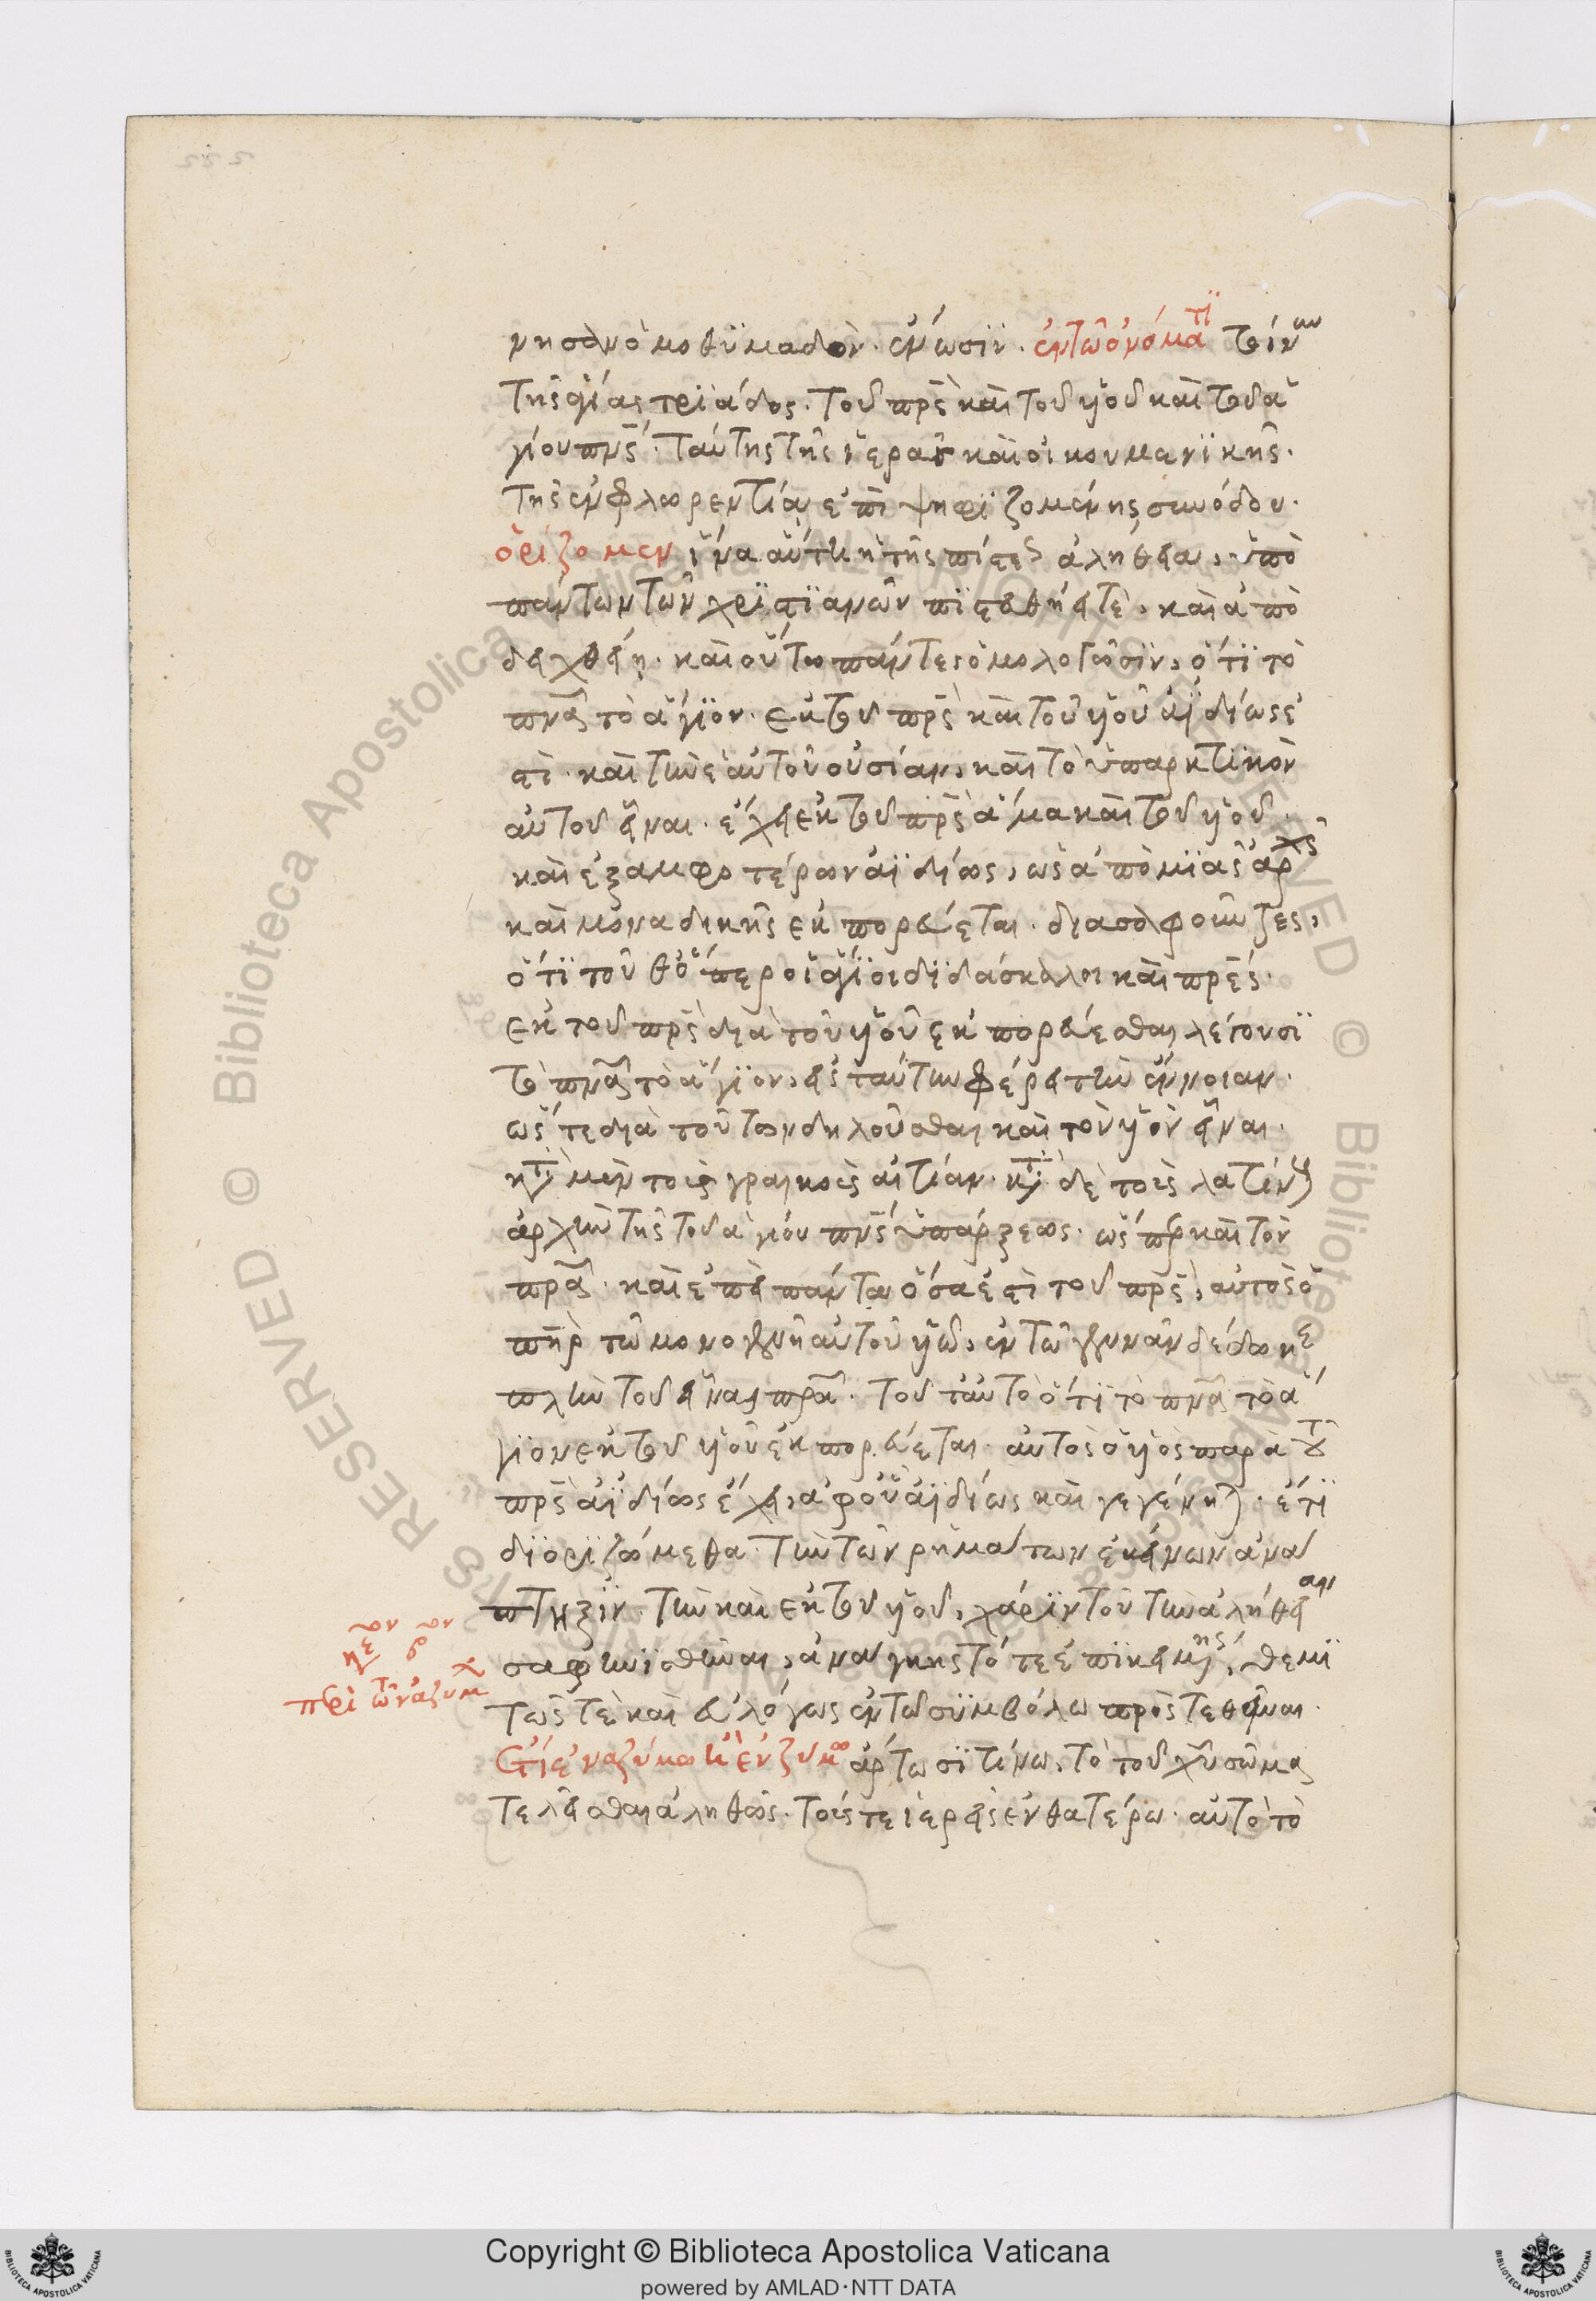 νησαν ὁμοθϋμαδὸν· ἑνώσϊν. ἐν τῶ ὀνόματϊ τοίνυν
τῆς ἁγίας τριάδος. τοῦ πρ̅ς καὶ τοῦ υἱοῦ καὶ τοῦ ἁ
γίου πν̅ς· ταύτης τῆς ἱερας καὶ οἰκουμενϊκῆς.
τῆς ἐν φλωρεντία ἐπὶ ψηφϊζομένης συνόδου.
ὁρίζομεν ἵνα αὕτη ἡ τῆς πίστεως ἀλήθεια, ὑπὸ
πάντων τῶν χρϊστϊανῶν πϊστευθήη τὲ, καὶ ἀπο
δεχθείη. καὶ οὕτω πάντες ὁμολογῶσϊν, ὅτϊ τὸ
πν̅α τὸ ἅγϊον. ἐκ τοῦ πρ̅ς καὶ τοῦ υἱοῦ ἀϊδίως ἐ
στὶ. καὶ τὴν ἑαυτοῦ οὐσίαν, καὶ τὸ ὑπαρκτϊκὸν
αὐτοῦ εἶναι. ἔχει ἐκ τοῦ πρ̅ς ἅμα καὶ τοῦ υἱοῦ.
καὶ ἐξ αμφοτέρων ἀϊδίως, ὡς ἀπὸ μϊᾶς ἀρχῆς
καὶ μοναδικῆς ἐκπορεύεται. διασαφοῦντες,
ὅτϊ τοῦθ' ὅπερ οἱ ἅγϊοι δϊδάσκαλοι καὶ πρ̅ες.
ἐκ τοῦ πρ̅ς διὰ τοῦ υἱοῦ ἐκπορεύεσθαι λέγουσϊ
τὸ πν̅α τὸ ἅγϊον, εἰς ταύτην φέρει τὴν ἔννοιαν.
ὥστε διὰ τούτων δηλοῦσθαι καὶ τὸν υἱὸν εἶναι.
κτ̅ μὲν τοὺς γραικοὺς αἰτίαν. κτ̅ δὲ τοὺς λατίνους
ἀρχὴν τῆς τοῦ ἁγίου πν̅ς ὑπάρξεως. ὥσπερ καὶ τὸν
πρ̅α. καὶ ἐπεὶ πάντα ὅσα ἐστὶ τοῦ πρ̅ς, αὐτὸς ὁ
πη̅ρ τῶ μονογενῆ αὐτοῦ υἱῶ, ἐν τῶ γεννᾶν δέδωκε
πλὴν τοῦ εἶναι πρ̅α. τοῦτ' αὐτὸ ὅτϊ τὸ πν̅α τὸ ἅ
γϊον ἐκ τοῦ υἱοῦ ἐκπορεύεται. αὐτὸς ὁ υἱὸς παρὰ τοῦ
πρ̅ς ἀϊδίως ἔχει, ἀφ' οὗ ἀϊδίως καὶ γεγένηται. ἔτϊ
δϊορϊζόμεθα. τὴν τῶν ρημάτων ἐκείνων ἀνά
πτηξϊν. τὴν καὶ ἐκ τοῦ υἱοῦ, χάρϊν τοῦ τὴν ἀλήθειαν
σαφηνϊσθῆναι, ἀνάγκης τότε ἐπϊκειμένης, θεμϊ
τῶς τὲ καὶ εὐλόγως ἐν τῶ σϋμβόλω προστεθεῖναι.
ἔτι ἐν αζύμω καὶ ἐνζύμω ἄρτω σϊτίνω, τὸ τοῦ χυ̅ σῶμα
τελεῖσθαι ἀληθῶς. τούς τε ἱερεῖς ἐν θατέρω. αὐτὸ τὸ
περὶ τῶν ἀζύμων